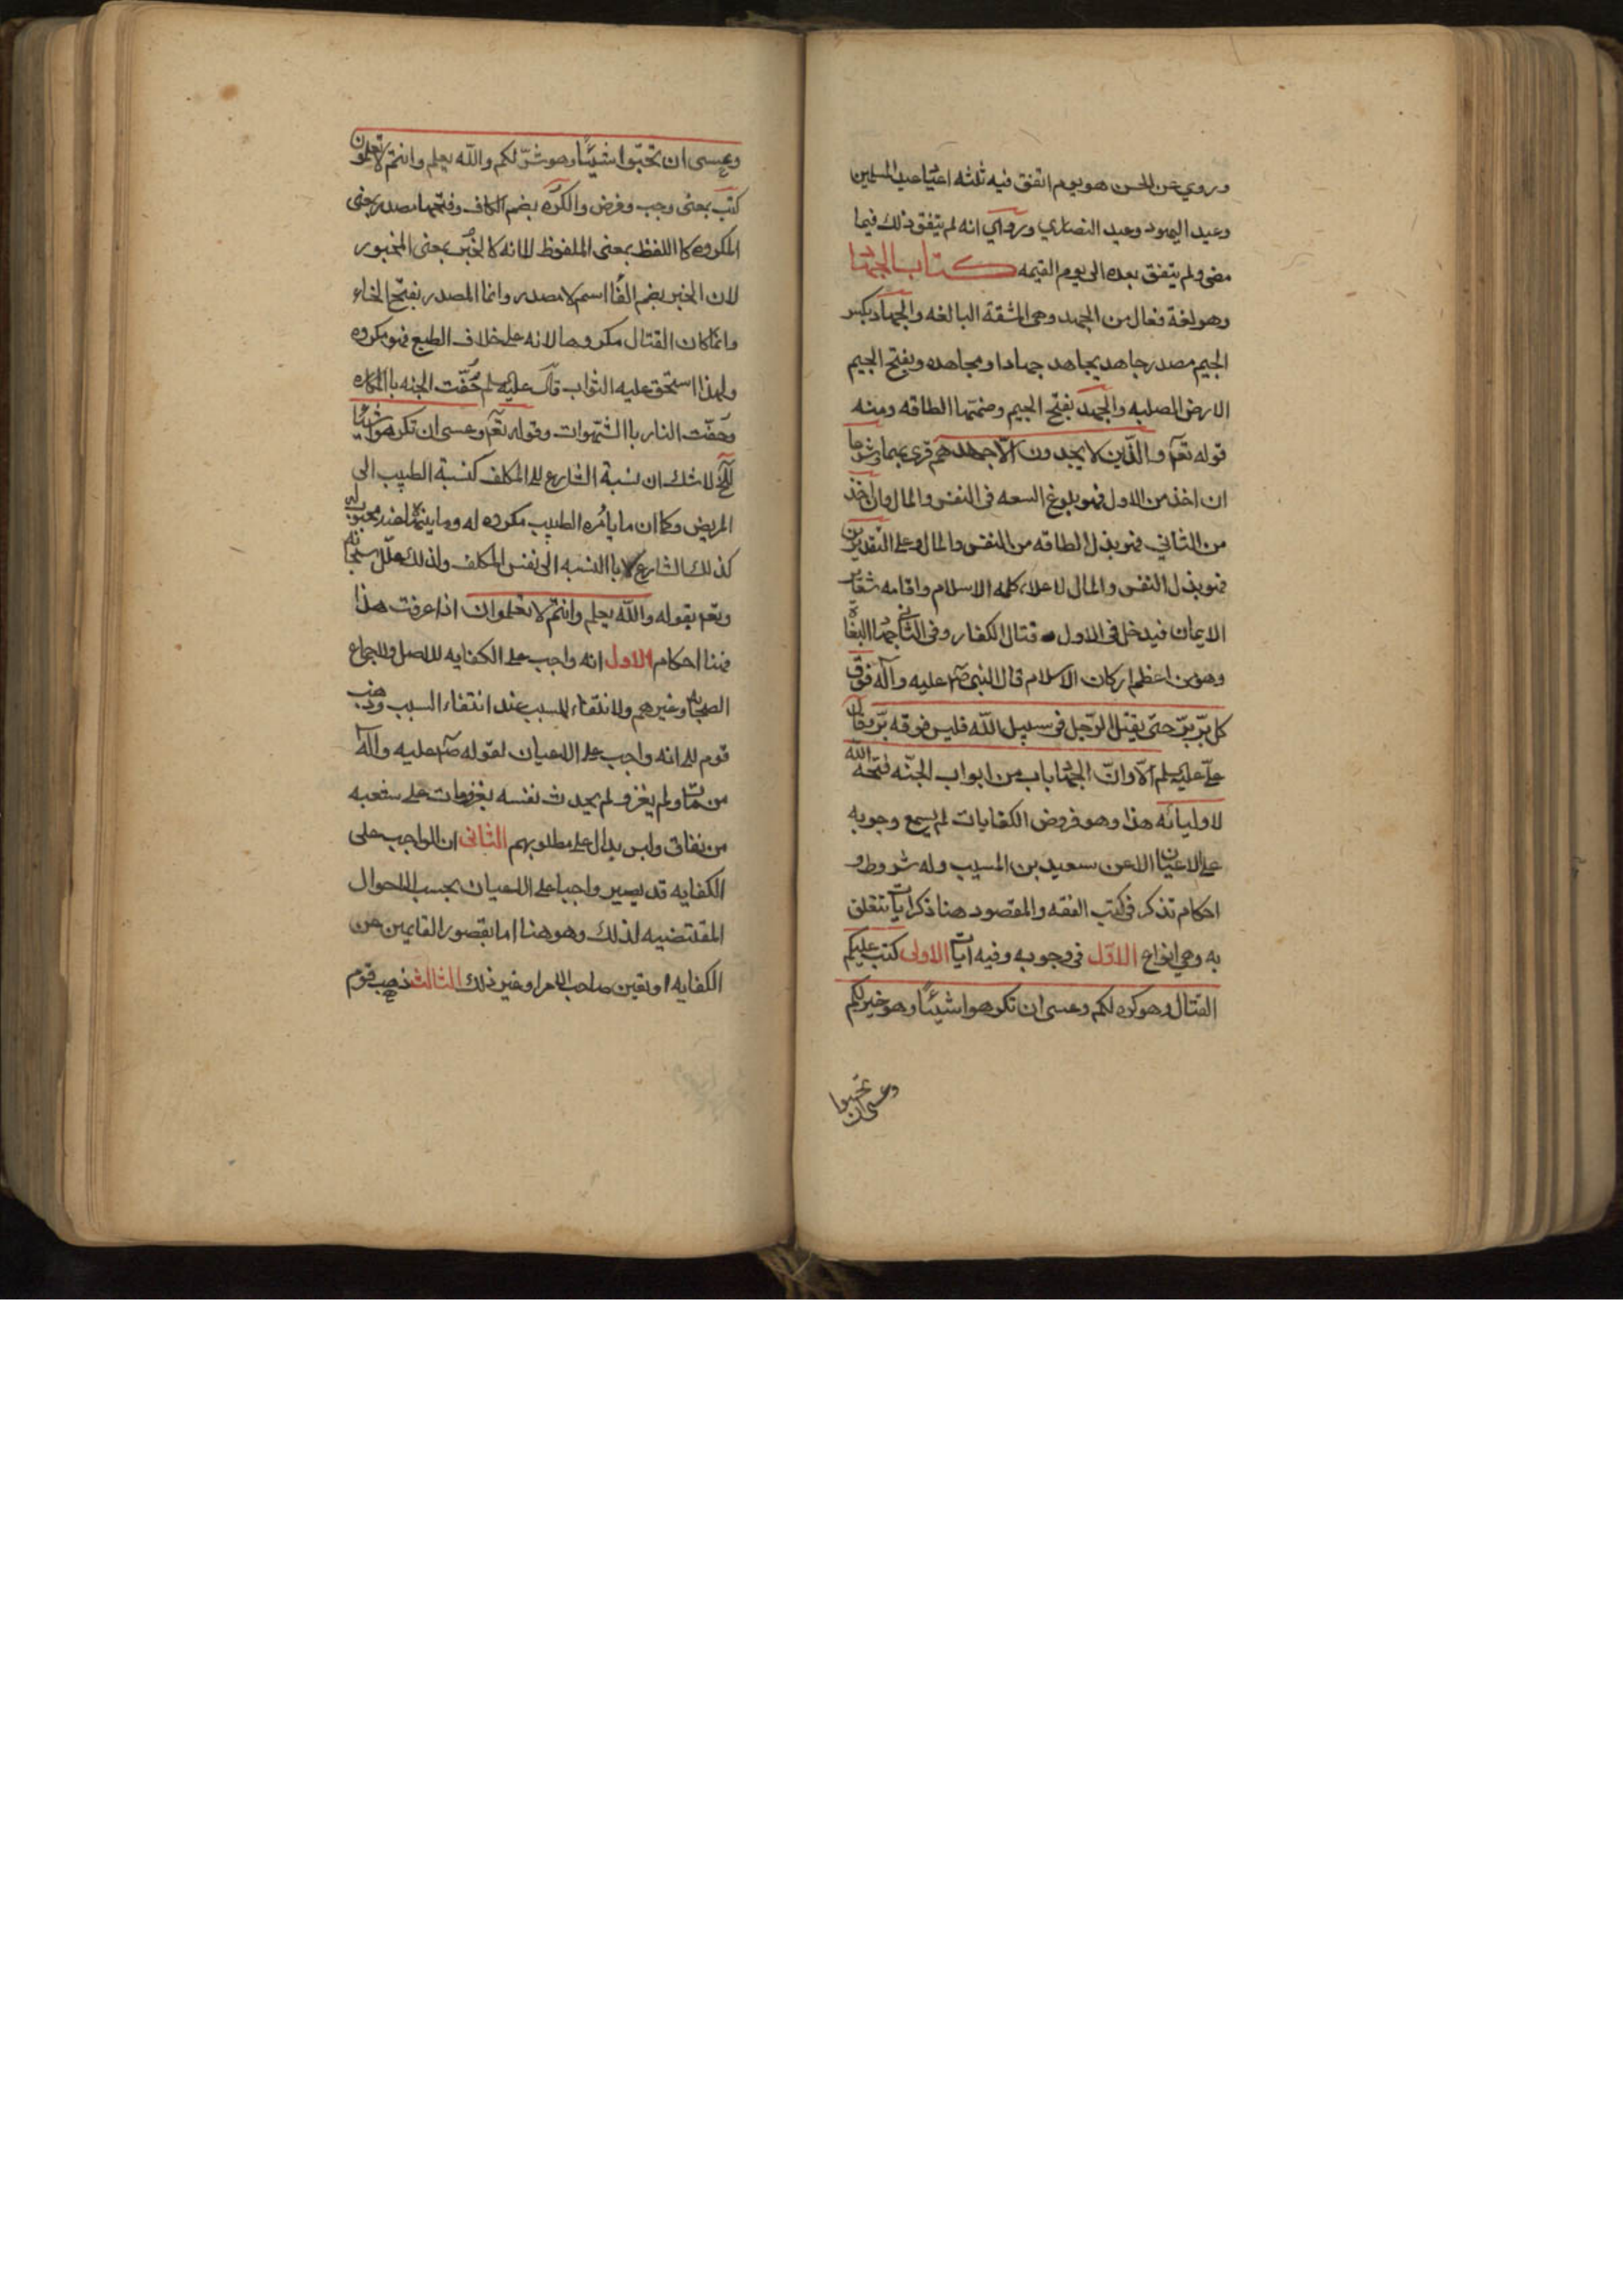 وروي عن الحسن هو يوم اتفق فيه ثلثه اعياد عيد المسلمين
وعيد اليهود وعيد النصاري وروي انه لم يتفق ذلك فيما
مضى ولم يتفق بعده الى يوم القيمه كتاب الجهاد
وهو لغة فعال من الجهد وهى المشقة البالغه والجهاد بكسر
الجيم مصدر جاهد يجاهد جهادا ومجاهده وبفتح الجيم
الارض الصلبه والجهد بفتح الجيم وضمتها الطاقه ومنه
قوله تع والذين لا يجدون الا جهدهم قرى بهما وشرعا
ان اخذ من الاول فهو بلوغ السعه فى النفس والمال وان اخذ
من الثاني فهو بذل الطاقه من النفس والمال وعلى التقديرين
فهو بذل النفس والمال لاعلاء كلمه الاسلام واقامه شعاير
الايمان فيدخل فى الاول قتال الكفار وفى الثاني جهاد البغاة
وهو من اعظم اركان الاسلام قال النبى ص عليه وآله فوق
كل بر بر حتى يقتل الرجل فى سبيل الله فليس فوقه بر وقال
على عليه لم الا وان الجهاد باب من ابواب الجنه فتحه الله
لاوليائه هذا وهو فروض الكفايات لم يسمع وجوبه
على الاعيان الا عن سعيد بن المسيب وله شروط و
احكام تذكر فى كتب الفقه والمقصود هنا ذكر ايات تتعلق
به وهي انواع الاول فى وجوبه وفيه ايات الاولى كتب عليكم
القتال وهو كره لكم وعسى ان تكرهوا شيئا وهو خير لكم
وعسى ان تحبوا
وعسى ان تحبوا شيئا وهو شر لكم والله يعلم وانتم لا تعلمون
كتب بمعنى وجب وفرض والكره بضم الكاف وفتحها مصدر بمعنى
المكروه كا اللفظ بمعنى الملفوظ لا انه كالخبر بمعنى المخبور
لان الخبر بضم الفا اسم لا مصدر وانما المصدر بفتح الخاء
وانما كان القتال مكروها لانه على خلاف الطبع فهو مكروه
ولهذا استحق عليه الثواب قال عليه لم حفت الجنه با المكاره
وحفت النار با الشهوات وقوله تع وعسى ان تكرهوا شيئا
الخ لا شك ان نسبة الشارع الى المكلف كنسبة الطبيب الى
المريض وكما ان ما يامره الطبيب مكروه له وما ينهاه عنه محبوب له
كذلك الشارع با النسبه الى نفس المكلف ولذلك علل سبحانه
وتع بقوله والله يعلم وانتم لا تعلموان اذا عرفت هذا
فهنا احكام الاول انه واجب على الكفايه للاصل ولاجماع
الصحابه وغيرهم ولانتفاء المسبب عند انتفاء السبب وذهب
قوم الى انه واجب على الاعيان لقوله ص عليه وآله
من مات ولم يغز ولم يحدث نفسه بغزو مات على شعبه
من نفاق وليس بدال على مطلوبهم الثانى ان الواجب على
الكفايه قد يصير واجبا على الاعيان بحسب الاحوال
المقتضيه لذلك وهو هنا اما بقصور القايمين عن
الكفايه او تعين صاحب الامر او غير ذلك الثالث ذهب قوم